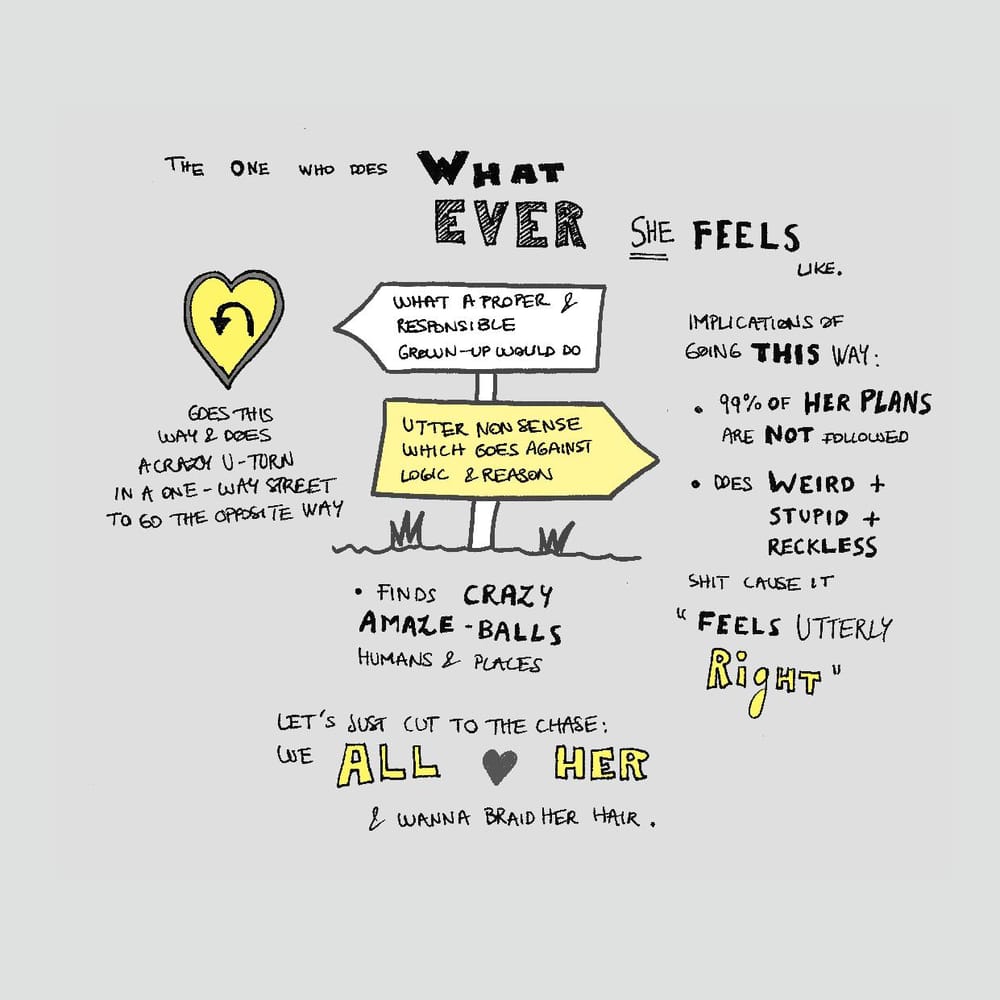 THE ONE WHO DOES WHAT
EVER SHE FEELS
LIKE.
WHAT A PROPER &
RESPONSIBLE
GROWN-UP WOULD DO
UTTER NON SENSE
WHICH GOES AGAINST
LOGIC & REASON
GOES THIS
WAY & DOES
A CRAZY U-TURN
IN A ONE-WAY STREET
TO GO THE OPPOSITE WAY
IMPLICATIONS OF
GOING THIS WAY:
• 99% OF HER PLANS
ARE NOT FOLLOWED
• DOES WEIRD +
STUPID +
RECKLESS
SHIT CAUSE IT
"FEELS UTTERLY
RIGHT"
• FINDS CRAZY
AMAZE-BALLS
HUMANS & PLACES
LET'S JUST CUT TO THE CHASE:
WE ALL ♥ HER
& WANNA BRAID HER HAIR.